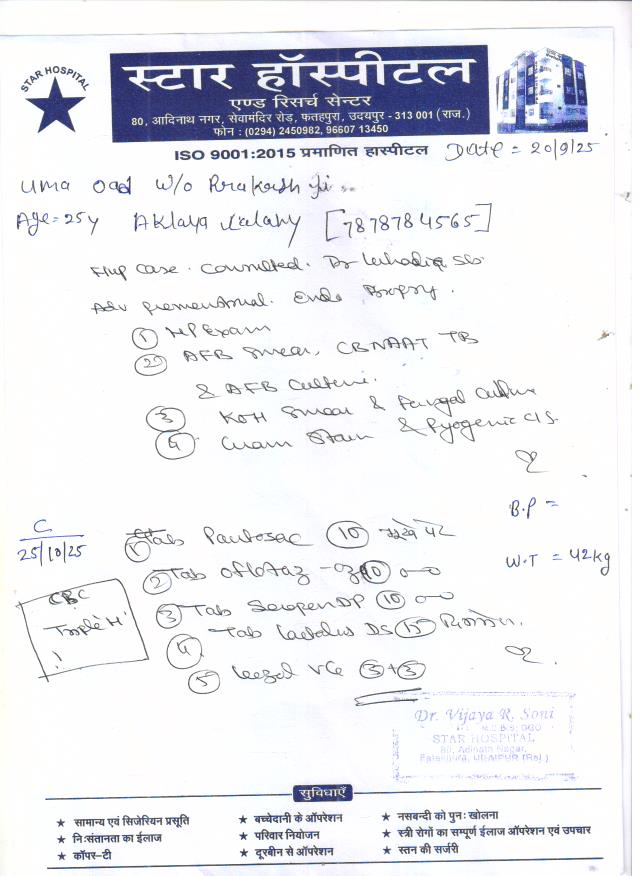 STAR HOSPITAL
स्टार हॉस्पीटल
एण्ड रिसर्च सेन्टर
80, आदिनाथ नगर, सेवामंदिर रोड़, फतहपुरा, उदयपुर - 313 001 (राज.)
फोन : (0294) 2450982, 96607 13450
ISO 9001:2015 प्रमाणित हास्पीटल
Date = 20/9/25
Uma Oad W/o Prakash ji
Age = 25y [7878784565]
case. Consulted. Dr
Adv premenstrual. Endo Biopsy.
① HP Exam
② AFB Smear, CBNAAT TB
& AFB Culture.
③ KOH Smear & Fungal Culture
④ Gram Stain & Pyogenic C/S.
B.P =
C
25/10/25
W.T = 42kg
CBC
Triple H
① Tab Pantosec ⑩ भूखे पेट
② Tab Oflotaz - ⑩
③ Tab DP ⑩
④ Tab DS ⑮
⑤ VG ③+③
Dr. Vijaya R. Soni
M.B.B.S. DGO
STAR HOSPITAL
80, Adinath Nagar,
Fatehpura, UDAIPUR (Raj.)
सुविधाएँ
★ सामान्य एवं सिजेरियन प्रसूति
★ बच्चेदानी के ऑपरेशन
★ नसबन्दी को पुनः खोलना
★ निःसंतानता का ईलाज
★ परिवार नियोजन
★ स्त्री रोगों का सम्पूर्ण ईलाज ऑपरेशन एवं उपचार
★ कॉपर-टी
★ दूरबीन से ऑपरेशन
★ स्तन की सर्जरी